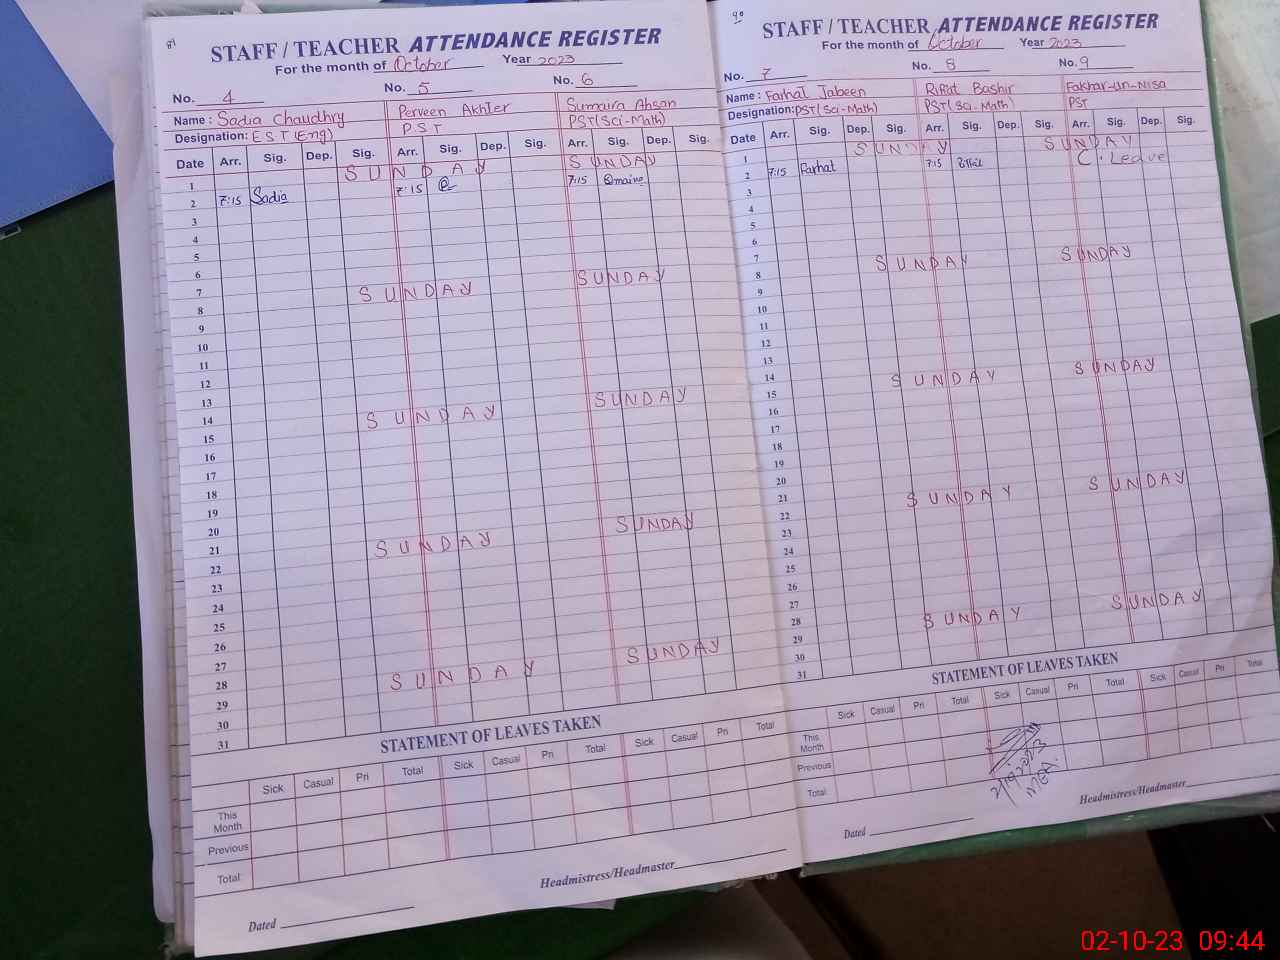 89
STAFF / TEACHER ATTENDANCE REGISTER
For the month of October Year 2023
No. 4 No. 5 No. 6
Name : Sadia Chaudhry Perveen Akhter Sumaira Ahsan
Designation: EST (Eng) PST PST(Sci-Math)
Date Arr. Sig. Dep. Sig. Arr. Sig. Dep. Sig. Arr. Sig. Dep. Sig.
1 SUNDAY SUNDAY
2 7:15 Sadia 7:15 7:15
3
4
5
6
7 SUNDAY SUNDAY
8
9
10
11
12
13
14 SUNDAY SUNDAY
15
16
17
18
19
20
21 SUNDAY SUNDAY
22
23
24
25
26
27
28 SUNDAY SUNDAY
29
30
31
STATEMENT OF LEAVES TAKEN
Sick Casual Pri Total Sick Casual Pri Total Sick Casual Pri Total
This Month
Previous
Total
Headmistress/Headmaster
Dated
90
STAFF / TEACHER ATTENDANCE REGISTER
For the month of October Year 2023
No. 7 No. 8 No. 9
Name : Farhat Jabeen Riffat Bashir Fakhar-un-Nisa
Designation: PST(Sci-Math) PST(Sci-Math) PST
Date Arr. Sig. Dep. Sig. Arr. Sig. Dep. Sig. Arr. Sig. Dep. Sig.
1 SUNDAY SUNDAY
2 7:15 Farhat 7:15 C. Leave
3
4
5
6
7 SUNDAY SUNDAY
8
9
10
11
12
13
14 SUNDAY SUNDAY
15
16
17
18
19
20
21 SUNDAY SUNDAY
22
23
24
25
26
27
28 SUNDAY SUNDAY
29
30
31
STATEMENT OF LEAVES TAKEN
Sick Casual Pri Total Sick Casual Pri Total Sick Casual Pri Total
This Month
Previous
Total
Headmistress/Headmaster
Dated
02-10-23 09:44